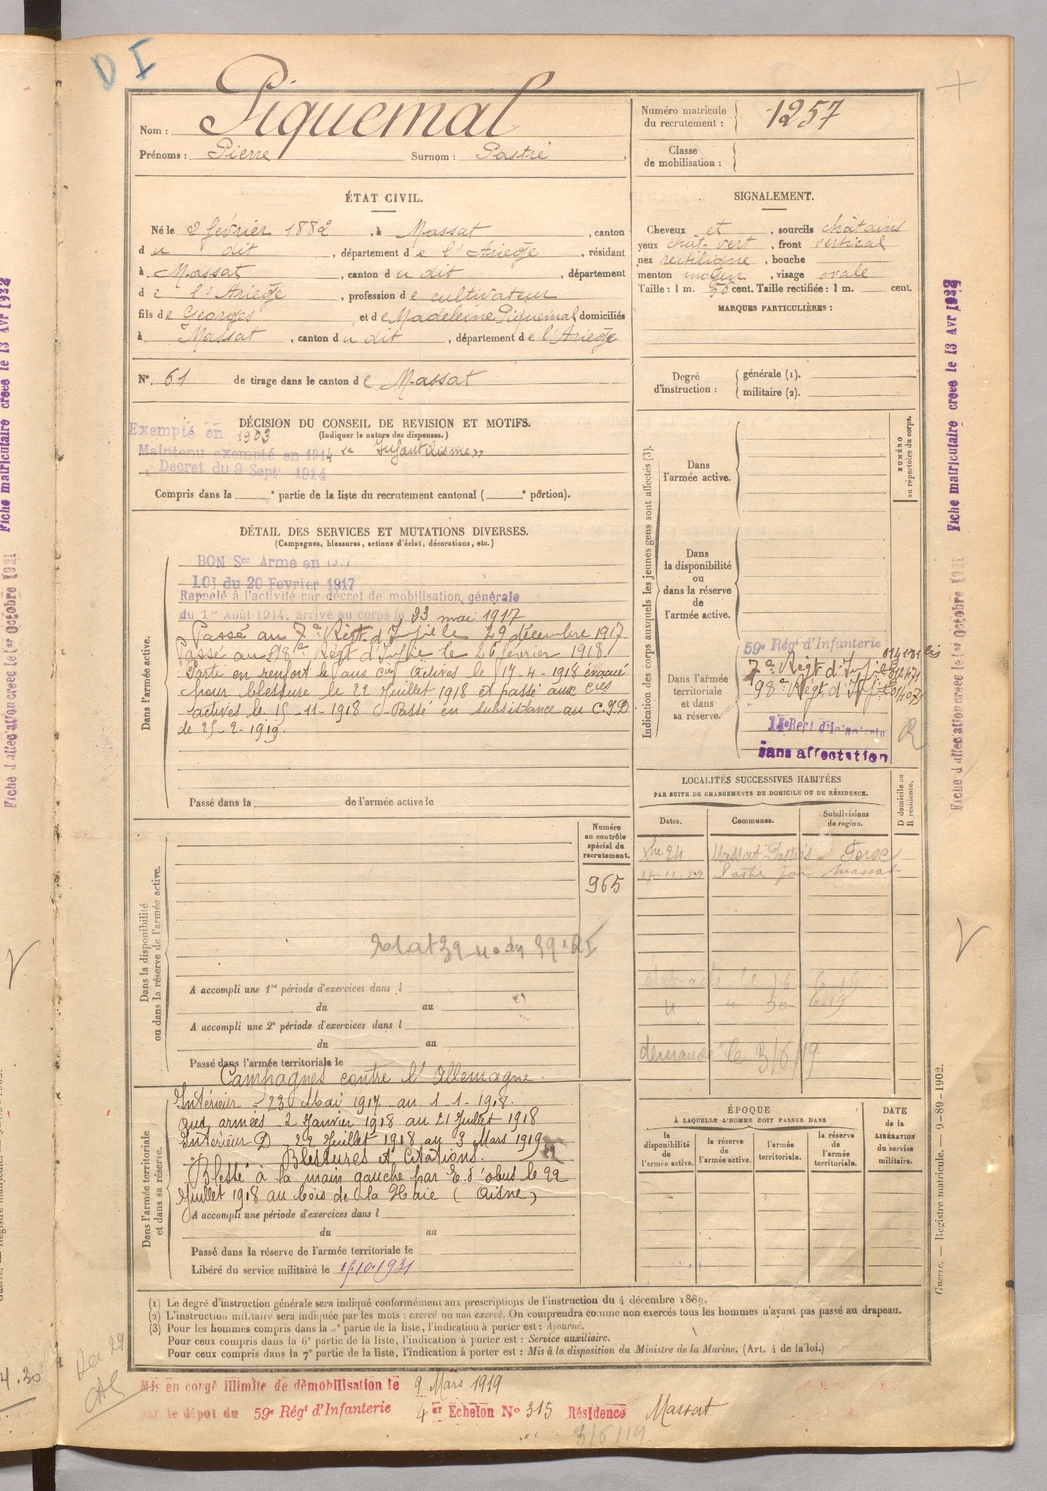 D I
Nom : Piquemal
Prénoms : Pierre Surnom : Pastré
Numéro matricule
du recrutement : 1257
Classe
de mobilisation :
ÉTAT CIVIL.
Né le 2 février 1882, à Massat, canton
du dit, département de l'Ariège, résidant
à Massat, canton du dit, département
de l'Ariège, profession de cultivateur
fils de Georges et de Madeleine Piquemal domiciliés
à Massat, canton du dit, département de l'Ariège
N° 61 de tirage dans le canton de Massat
SIGNALEMENT.
Cheveux et, sourcils châtains
yeux chat-vert, front vertical
nez rectiligne, bouche
menton moyen, visage ovale
Taille : 1 m. 50 cent. Taille rectifiée : 1 m. cent.
MARQUES PARTICULIÈRES :
Degré
d'instruction :
générale (1).
militaire (2).
DÉCISION DU CONSEIL DE REVISION ET MOTIFS.
(Indiquer la nature des dispenses.)
Exempté en 1903
Maintenu exempté en 1914 « Infantilisme »
Décret du 9 Sept 1914
Compris dans la e partie de la liste du recrutement cantonal ( e portion).
DÉTAIL DES SERVICES ET MUTATIONS DIVERSES.
(Campagnes, blessures, actions d'éclat, décorations, etc.)
Dans l'armée active.
BON Sce Armé en
LOI du 20 Février 1917
Rappelé à l'activité par décret de mobilisation générale
du 1er Août 1914, arrivé au corps le 23 mai 1917
Passé au 7e Régt d'Infie le 29 décembre 1917
Passé au 98e Régt d'Infie le février 1918
Porté en renfort aux Cies actives le 17-4-1918 évacué
pour blessure le 22 Juillet 1918 et passé aux Cies
actives le 15-11-1918 Passé en subsistance au C.I.D
de 25-2-1919.
Passé dans la de l'armée active le
Indication des corps auxquels les jeunes gens sont affectés (3).
NUMÉRO
au répertoire du corps.
Dans
l'armée active.
Dans
la disponibilité
ou
dans la réserve
de
l'armée active.
Dans l'armée
territoriale
et dans
sa réserve.
59e Régt d'Infanterie
7e Régt d'Infie
98e Régt d'Infie
Régt d'Infanterie
sans affectation
R
LOCALITÉS SUCCESSIVES HABITÉES
PAR SUITE DE CHANGEMENTS DE DOMICILE OU DE RÉSIDENCE.
Dates. Communes. Subdivisions
de région.
D domicile ou
R résidence.
24 Massat Foix
par Massat
demande le 3/6/19
Dans la disponibilité
ou dans la réserve de l'armée active.
Numéro
au contrôle
spécial du
recrutement.
965
A accompli une 1re période d'exercices dans l
du au
A accompli une 2e période d'exercices dans l
du au
Passé dans l'armée territoriale le
Campagnes contre l'Allemagne
Dans l'armée territoriale
et dans sa réserve.
Intérieur 23 Mai 1917 au 1-1-1918.
aux armées 2 Janvier 1918 au 21 Juillet 1918
Intérieur D 22 Juillet 1918 au 3 Mars 1919
Blessures et Citations.
Blessé à la main gauche par E. d'obus le 22
Juillet 1918 au bois de la Haie (Aisne)
A accompli une période d'exercices dans l
du au
Passé dans la réserve de l'armée territoriale le
Libéré du service militaire le 15.10.1931
ÉPOQUE
À LAQUELLE L'HOMME DOIT PASSER DANS
la
disponibilité
de
l'armée active.
la réserve
de
l'armée active.
l'armée
territoriale.
la réserve
de
l'armée
territoriale.
DATE
de la
LIBÉRATION
du service
militaire.
(1) Le degré d'instruction générale sera indiqué conformément aux prescriptions de l'instruction du 4 décembre 1889.
(2) L'instruction militaire sera indiquée par les mots : exercé ou non exercé. On comprendra comme non exercés tous les hommes n'ayant pas passé au drapeau.
(3) Pour les hommes compris dans la 2e partie de la liste, l'indication à porter est : Ajourné.
Pour ceux compris dans la 6e partie de la liste, l'indication à porter est : Service auxiliaire.
Pour ceux compris dans la 7e partie de la liste, l'indication à porter est : Mis à la disposition du Ministre de la Marine. (Art. 4 de la loi.)
Mis en congé illimité de démobilisation le 9 Mars 1919
par le dépôt du 59e Régt d'Infanterie 4 er Echelon No 315 Résidence Massat
3/6/19
Fiche matriculaire créée le 13 Avr 1922
Fiche d'affectation créée le 1er Octobre 1921
Guerre. — Registre matricule. — 9-89-1902.
Fiche matriculaire créée le 13 Avr 1922
Fiche d'affectation créée le 1er Octobre 1921